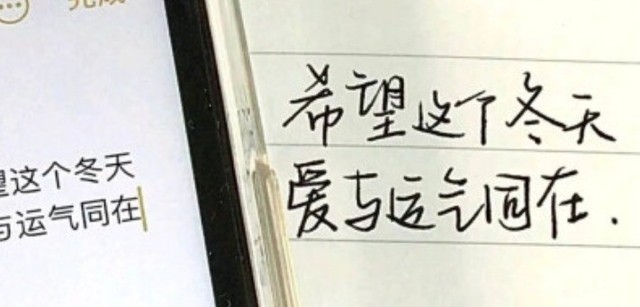 完成
望这个冬天
与运气同在
希望这个冬天
爱与运气同在.